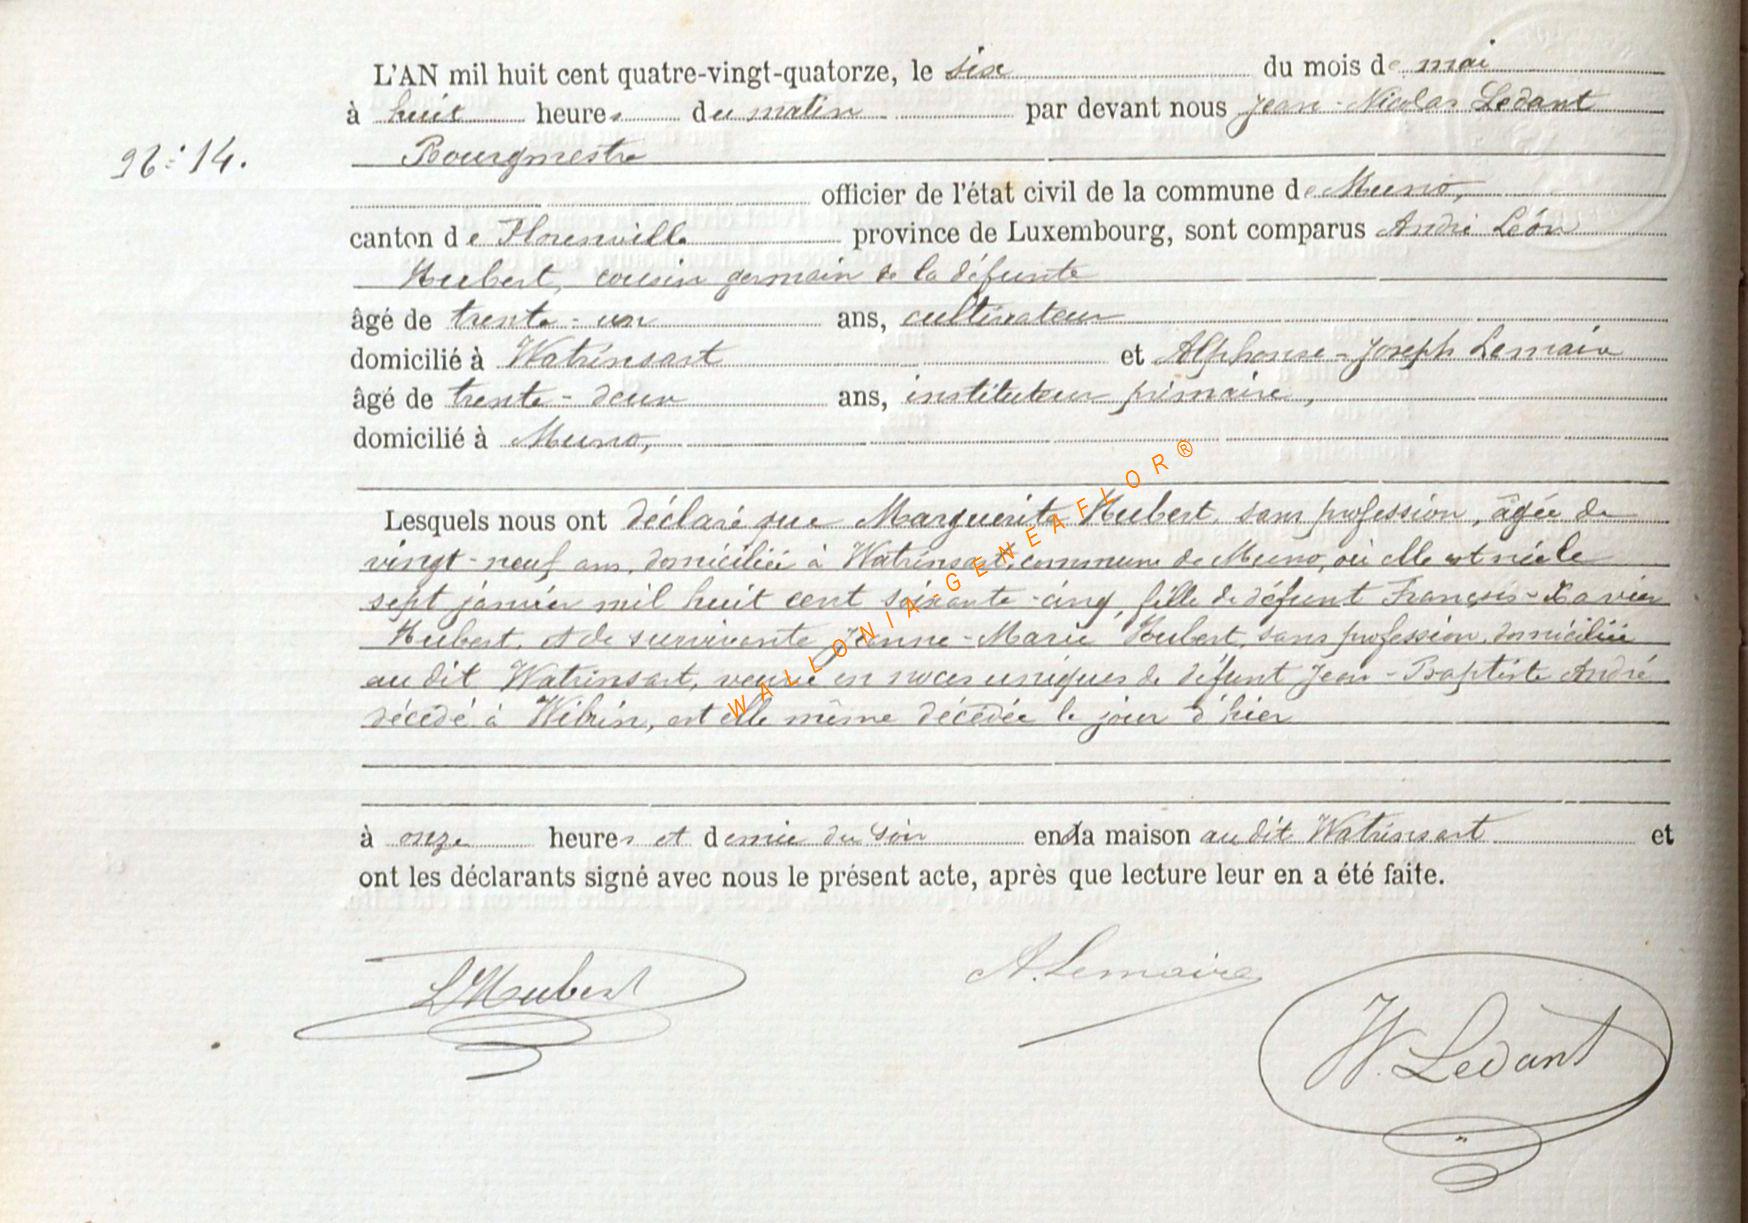 L'AN mil huit cent quatre-vingt-quatorze, le six du mois de mai
à huit heures du matin par devant nous Jean-Nicolas Ledant
N° 14.
Bourgmestre
officier de l'état civil de la commune de Muno,
canton de Florenville province de Luxembourg, sont comparus André Léon
Hubert, cousin germain de la défunte
âgé de trente-un ans, cultivateur
domicilié à Watrinsart et Alphonse-Joseph Lemaire
âgé de trente-deux ans, instituteur primaire,
domicilié à Muno,
Lesquels nous ont déclaré que Marguerite Hubert, sans profession, âgée de
vingt-neuf ans, domiciliée à Watrinsart, commune de Muno, où elle est née le
sept janvier mil huit cent soixante-cinq, fille de défunt François-Xavier
Hubert, et de survivante Jeanne-Marie Hubert, sans profession, domiciliée
au dit Watrinsart, veuve en noces uniques de défunt Jean-Baptiste André
décédé à Wibrin, est elle même décédée le jour d'hier
à onze heures et demie du soir en la maison au dit Watrinsart et
ont les déclarants signé avec nous le présent acte, après que lecture leur en a été faite.
LHubert
A. Lemaire
N. Ledant
WALLONIA-GENEAFLOR®